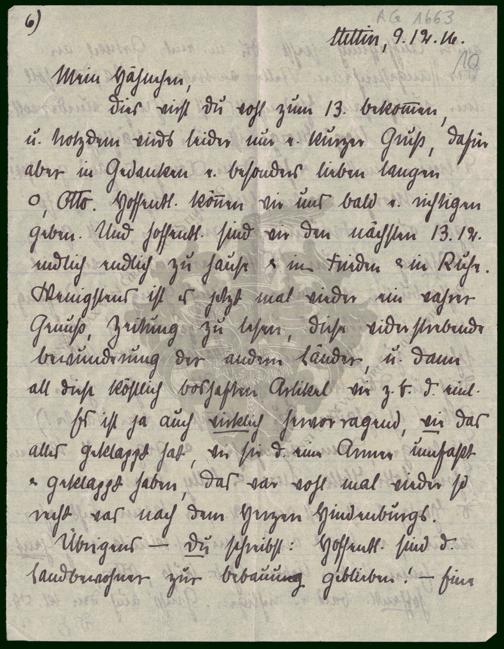 6)
AG 1663
Stettin, 9.12.16.
10
Mein Hähnchen,
Dies wirst Du wohl zum 13. bekommen,
u. trotzdem wirds leider nur e. kurzer Gruß, dafür
aber in Gedanken e. besonders lieben langen
O, Otto. Hoffentl. können wir uns bald e. richtigen
geben. Und hoffentl. sind wir den nächsten 13.12.
endlich endlich zu hause & im Frieden & in Ruhe.
Wenigstens ist es jetzt mal wieder ein wahrer
Genuss, Zeitung zu lesen, diese widerstrebende
bewunderung der andern Länder, u. dann
all diese köstlich boshaften Artikel wie z.b. d.
Es ist ja auch wirklich hervorragend, wie das
alles geklappt hat, wie sie d. eine Armee umfasst
& geklappt haben, das war wohl mal wieder so
recht was nach dem Herzen Hindenburgs.
Übrigens — Du schreibst: Hoffentl. sind d.
Landbewohner zur bebauung geblieben! — Eine